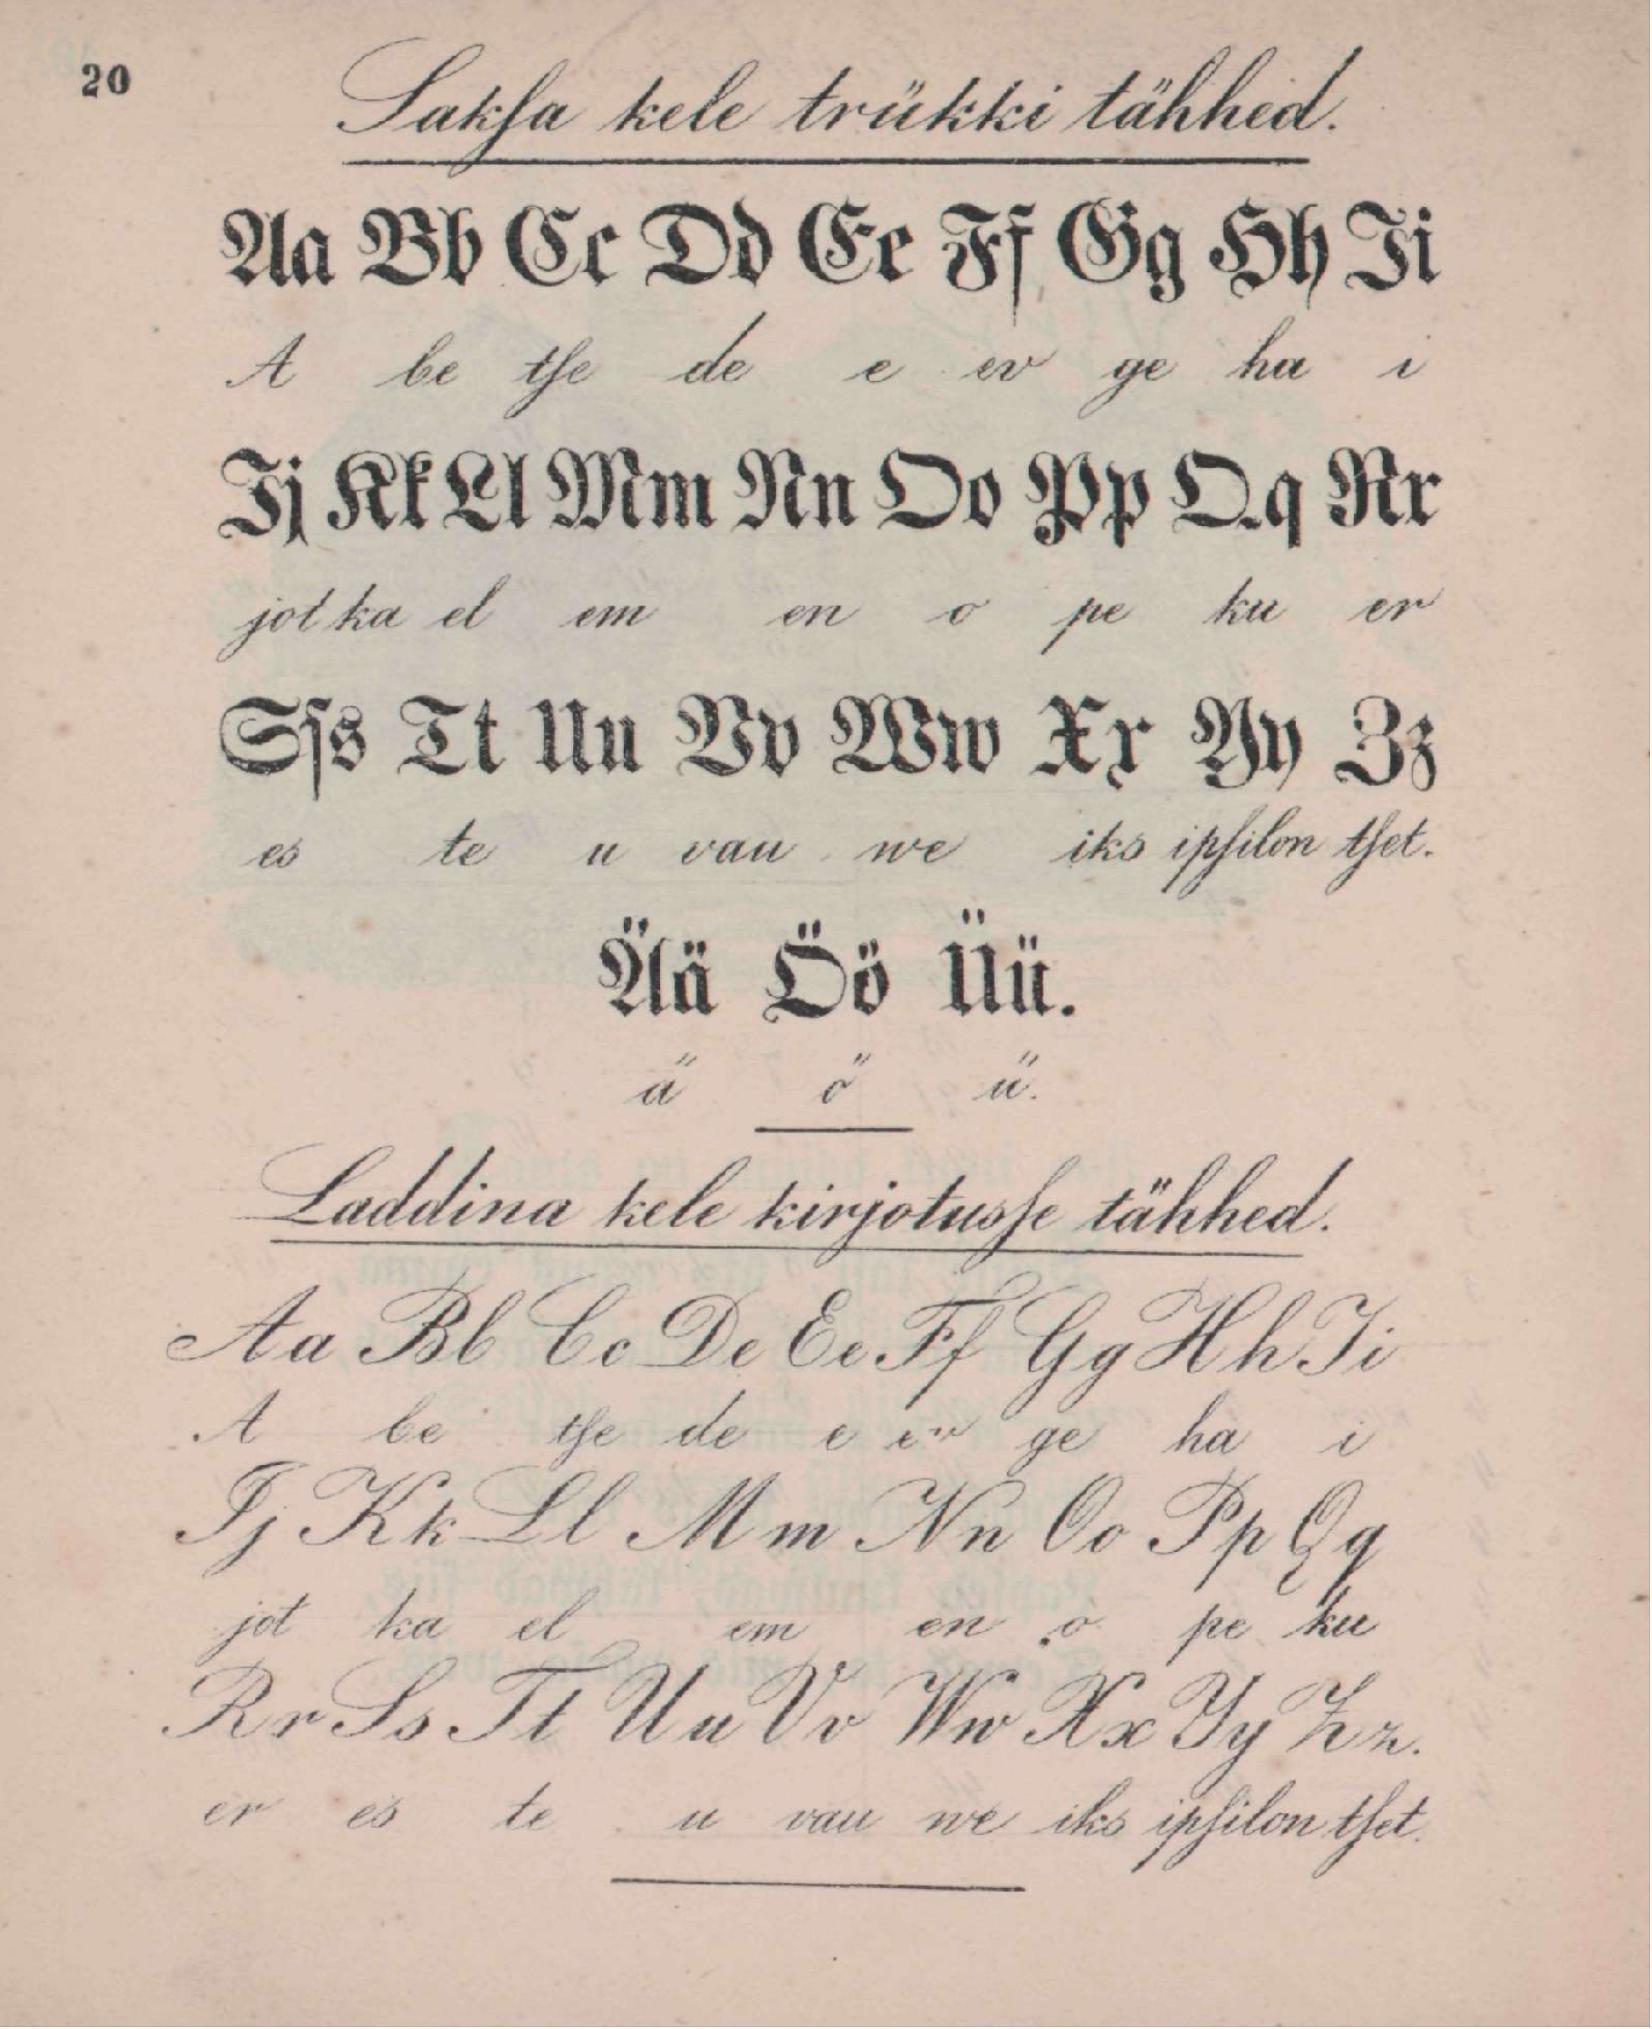 20
Sakſa kele trükki tähhed.
Aa Bb Cc Dd Ee Ff Gg Hh Ii
A be tſe de e ev ge ha i
Jj Kk Ll Mm Nn Oo Pp Qq Rr
jot ka el em en o pe ku er
Sſs Tt Uu Vv Ww Xx Yy Zz
es te u vau we iks ipſilon tſet.
Ää Öö Üü.
ä ö ü.
Laddina kele kirjotusſe tähhed.
Aa Bb Cc De Ee Ff Gg Hh Ii
A be tſe de e ev ge ha i
Jj Kk Ll Mm Nn Oo Pp Qq
jot ka el em en o pe ku
Rr Ss Tt Uu Vv Ww Xx Yy Zz.
er es te u vau we iks ipſilon tſet.